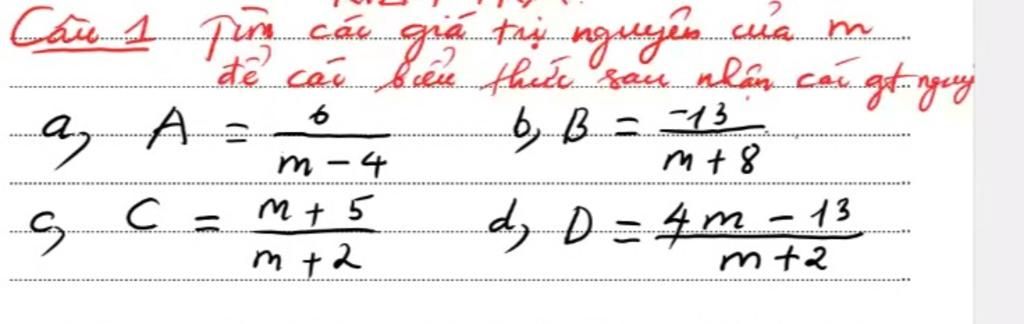 Câu 1 Tìm các giá trị nguyên của m
để các biểu thức sau nhận các gt nguy
a, A = 6 / (m - 4) b, B = -13 / (m + 8)
c, C = (m + 5) / (m + 2) d, D = (4m - 13) / (m + 2)